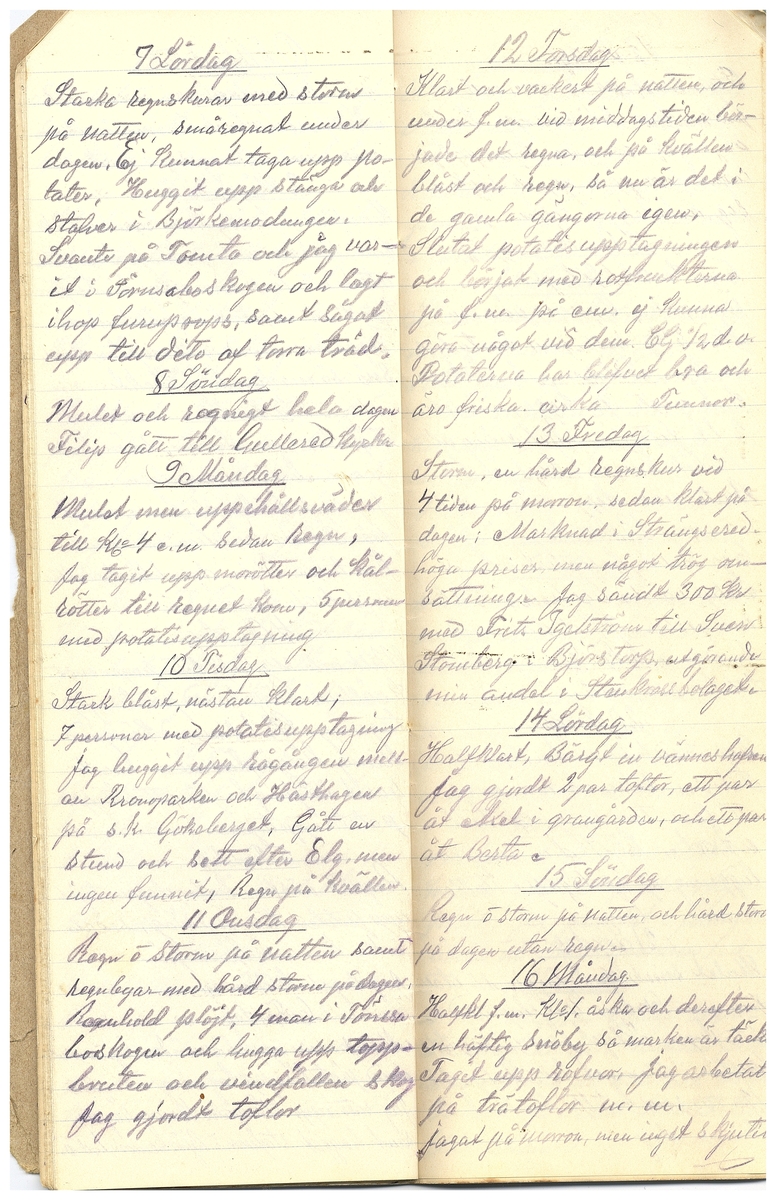 7 Lördag
Starka regnskurar med storm
på natten, småregnat under
dagen. Ej kunnat taga upp po-
tater, Huggit upp stänga och
stolver i Björkemodungen.
Svante på Tomta och jag var-
it i Törnsaboskogen och lagt
ihop furuprops, samt sågat
upp till dito af torra träd.
8 Söndag
Mulet och regnigt hela dagen
Filip gått till Gullered kyrka
9 Måndag
Mulet men uppehållsväder
till Kl 4 e.m. sedan Regn,
Jag tagit upp morötter och kål-
rötter till regnet kom, 5 personer
med potatisupptagning
10 Tisdag
Stark blåst, nästan klart;
7 personer med potatisupptagning
Jag huggit upp rågången mell-
an Kronoparken och Hästhagen
på s.k. Gökaberget, Gått en
stund och sett efter Elg, men
ingen funnit, Regn på kvällen.
11 Onsdag
Regn ö storm på natten samt
regnbyar med hård storm på dagen,
Regnhold plöjt, 4 man i Törnsa
boskogen och hugga upp topp-
bruten och vindfällen skog
Jag gjordt toflor
12 Torsdag
Klart och vackert på natten, och
under f.m. vid middagstiden bör-
jade det regna, och på kvällen
blåst och regn, så nu är det i
de gamla gångorna igen,
Slutat potatisupptagningen
och börjat med rotfrukterna
på f.m. på em. ej kunna
göra något vid dem. Elj 1/2 d.o.
Potaterna har blifvet bra och
äro friska. cirka Tunnor.
13 Fredag
Storm, en hård regnskur vid
4 tiden på morron, sedan klart på
dagen; Marknad i Strängsered
höga priser men något trög om-
sättning. Jag sändt 300 Kr
med Frits Igelström till Sven
Stomberg i Björstorp, utgörande
min andel i Stenkrossbolaget.
14 Lördag
Halfklart, Bärgt in vänneshafren
Jag gjordt 2 par toflor, ett par
åt Axel i grangården, och ett par
åt Berta
15 Söndag
Regn ö storm på natten, och hård storm
på dagen utan regn.
16 Måndag
Halfkl f.m. Kl 1/2 1. åska och derefter
en häftig snöby så marken är täckt
Taget upp rofvor. Jag arbetat
på trätoflor m.m.
jagat på morron, men inget skjutit